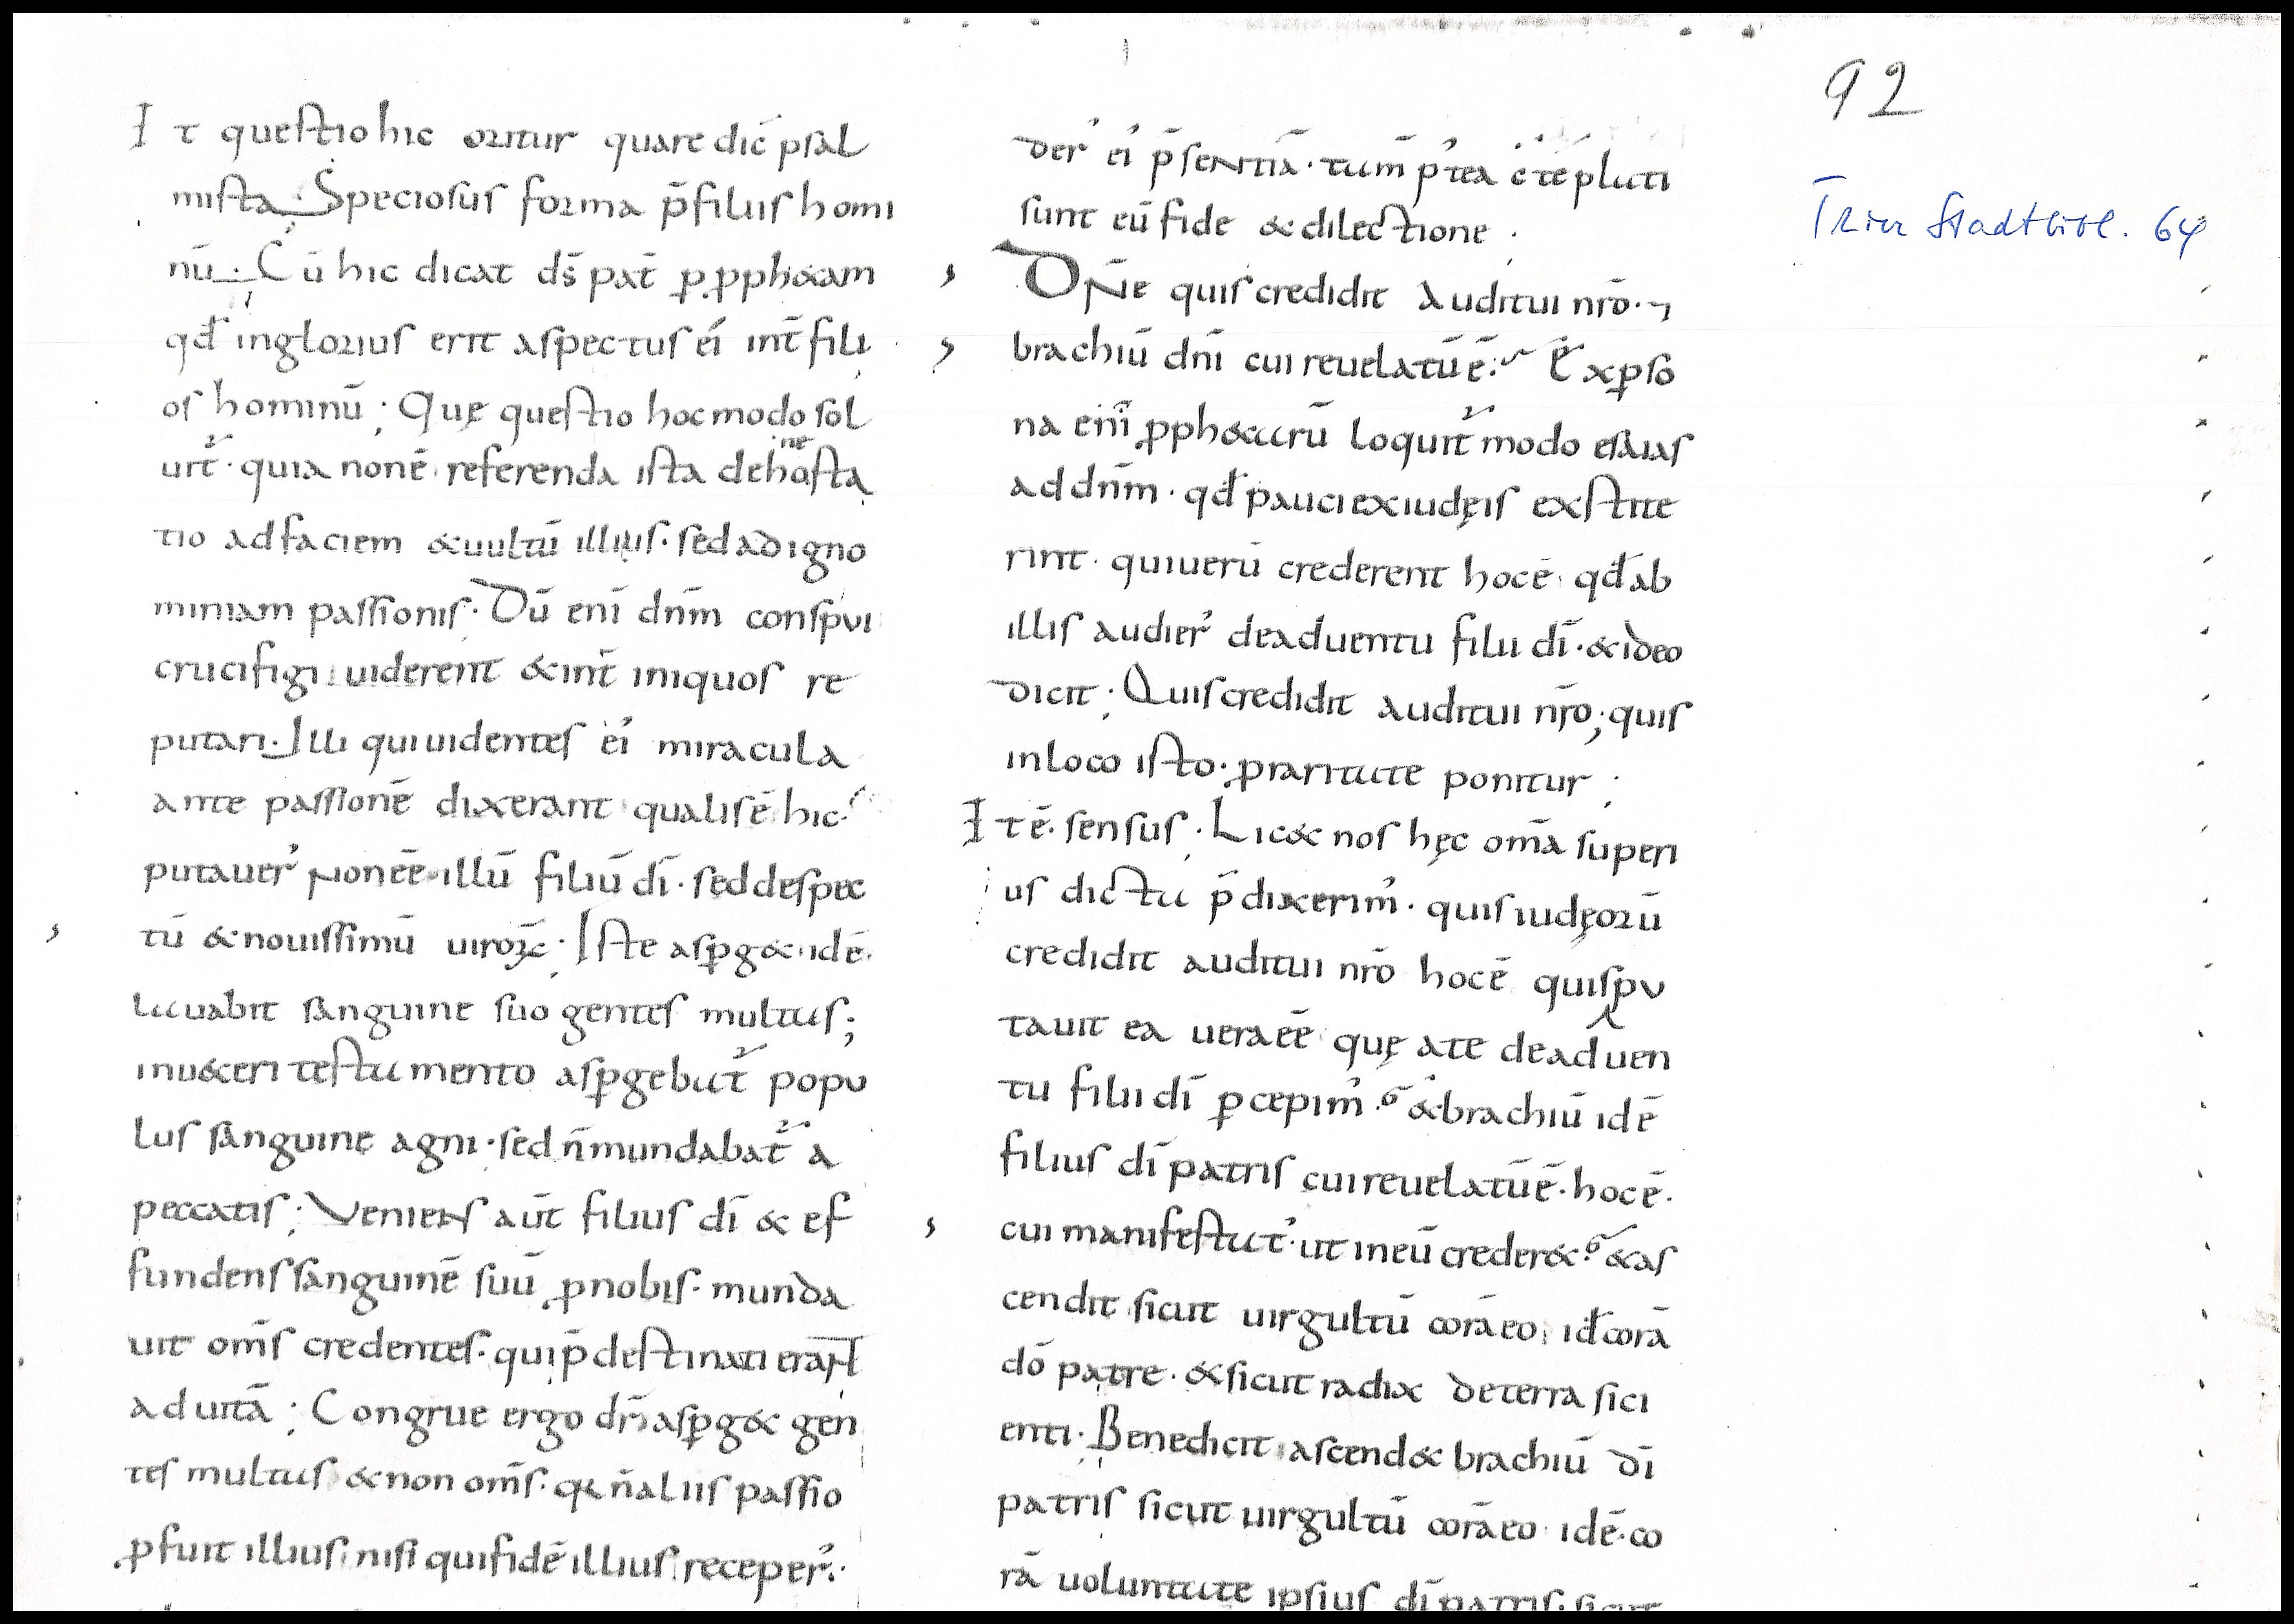 It questio hic oritur quare dic̄ psal
mista. Speciosus forma p̄ filiis homi
nū. Cū hic dicat ds̄ pat̄ ꝑ ꝓph&am
qđ inglorius erit aspectus ei' int̄ fili
os hominū; Quę questio hoc modo sol
uit̄. quia non ē referenda ista dehone sta
tio ad faciem & uultū illius. sed ad igno
miniam passionis. Dū eni dn̄m conspui
crucifigi uiderent & int̄ iniquos re
putari. Illi qui uidentes ei' miracula
ante passionē dixerant qualis ē hic.
putauer' non eē illū filiū dī. sed despec
tū & nouissimū uiroꝝ; Iste aspg& idē.
lauabit sanguine suo gentes multas;
In u&eri testamento aspgebat̄ popu
lus sanguine agni. sed n̄ mundabat̄ a
peccatis; Veniens aūt filius dī & ef
fundens sanguinē suū ꝓ nobis. munda
uit om̄s credentes. qui p̄destinati erant
ad uitā; Congrue ergo dn̄s aspg& gen
tes multas & non om̄s. n̄ aliis passio
ꝓfuit illius nisi qui fidē illius receper'.
92
Trier Stadtbibl. 64
der' ei' p̄sentiā. tum p'tea cte̅plati
sunt eū fide & dilectione.
DNe quis credidit auditui nr̄o. ⁊
brachiū dn̄i cui reuelatū ē. Ex ꝑso
na enī ꝓph&arū loquit̄ modo esaias
ad dn̄m. qđ pauci ex iudęis exstite
rint. qui uerū crederent hoc ē qđ ab
illis audier' de aduentu filii dī. & ideo
dicit; Quis credidit auditui nr̄o; quis
in loco isto. ꝓ raritate ponitur;
Itē. sensus. Lic& nos hęc om̄a superi
us dicta p̄dixerim'. quis iudęorū
credidit auditui nr̄o hoc ē quis pu
tauit ea uera eē quę a te de aduen
tu filii dī ꝑcepim'. & brachiū idē
filius dī patris cui reuelatū ē. hoc ē.
cui manifestat'. ut in eū creder&. & as
cendit sicut uirgultū corā eo. idē corā
dō patre. & sicut radix de terra sici
enti. Bene dicit ascend& brachiū dī
patris sicut uirgultū corā eo idē. co
rā uoluntate ipsius dī patris. sicut